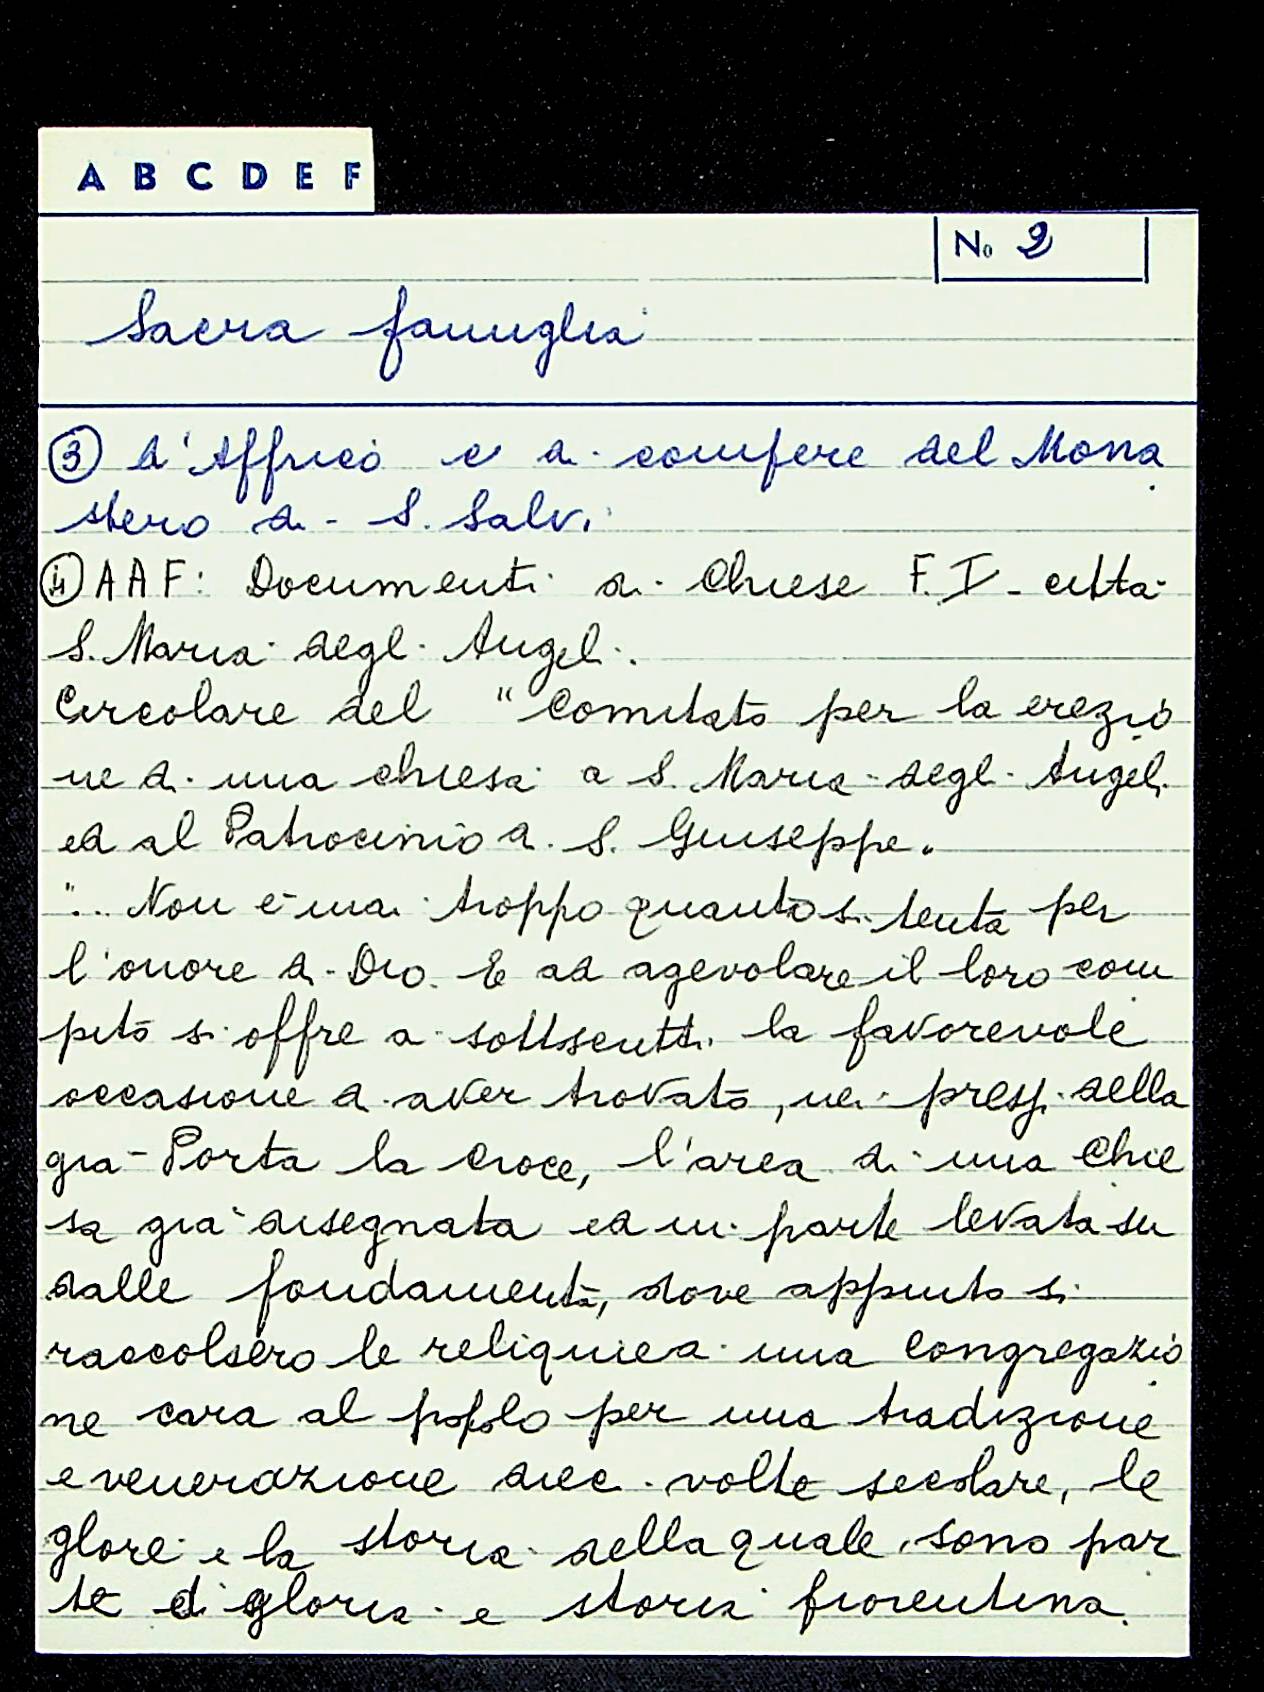 A B C D E F
No 2
Sacra famiglia
③ d'Affrico e di confere del Mona
stero di S. Salvi
④ AAF: Documenti di Chiese F. I - citta
S. Maria degli Angeli.
Circolare del "Comitato per la erezio
ne di una chiesa a S. Maria degli Angeli
ed al Patrocinio di S. Giuseppe.
".. Non è mai troppo quanto si tenta per
l'onore di Dio. E ad agevolare il loro com
pito si offre ai sottoscritti la favorevole
occasione di aver trovato, nei pressi della
già Porta la Croce, l'area di una Chie
sa già disegnata ed in parte levata su
dalle fondamenta, dove appunto si
raccolsero le reliquie di una Congregazio
ne cara al popolo per una tradizione
e venerazione dieci volte secolare, le
glorie e la storia della quale sono par
te di gloria e storia fiorentina.